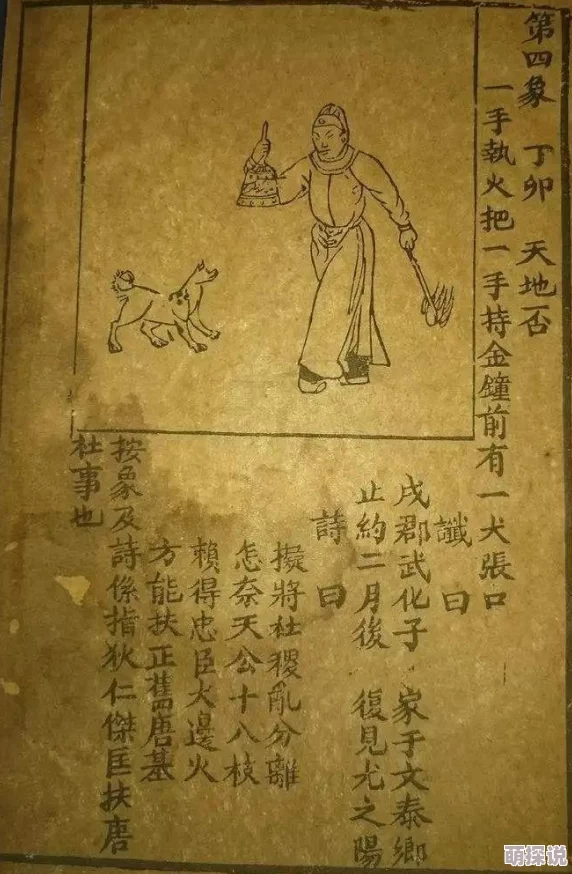 第四象 丁卯 天地否
一手執火把一手持金鐘前有一犬張口
讖曰
戌郡武化子 家于文泰鄉
止約二月後 復見尤之陽
詩曰
擬將杜稷亂分離
怎奈天公十八枝
賴得忠臣火邊火
方能扶正舊唐基
按象及詩係指狄仁傑匡扶唐
杜事也
萌探说